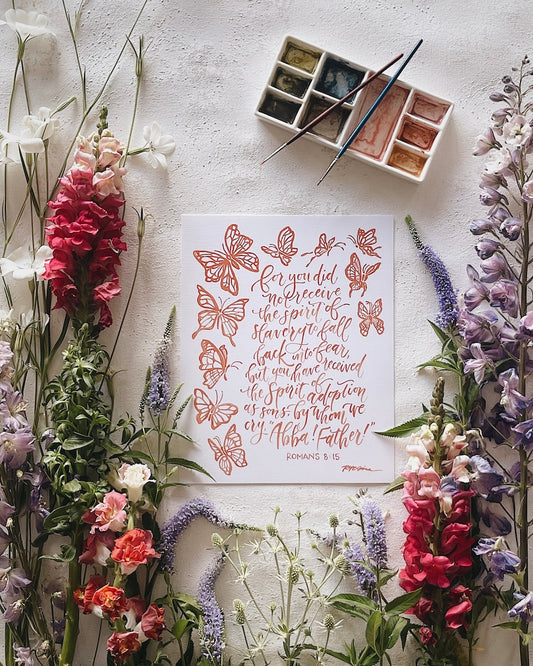 for you did
not receive
the spirit of
slavery to fall
back into fear,
but you have received
the Spirit of adoption
as sons, by whom we
cry, "Abba! Father!"
ROMANS 8:15